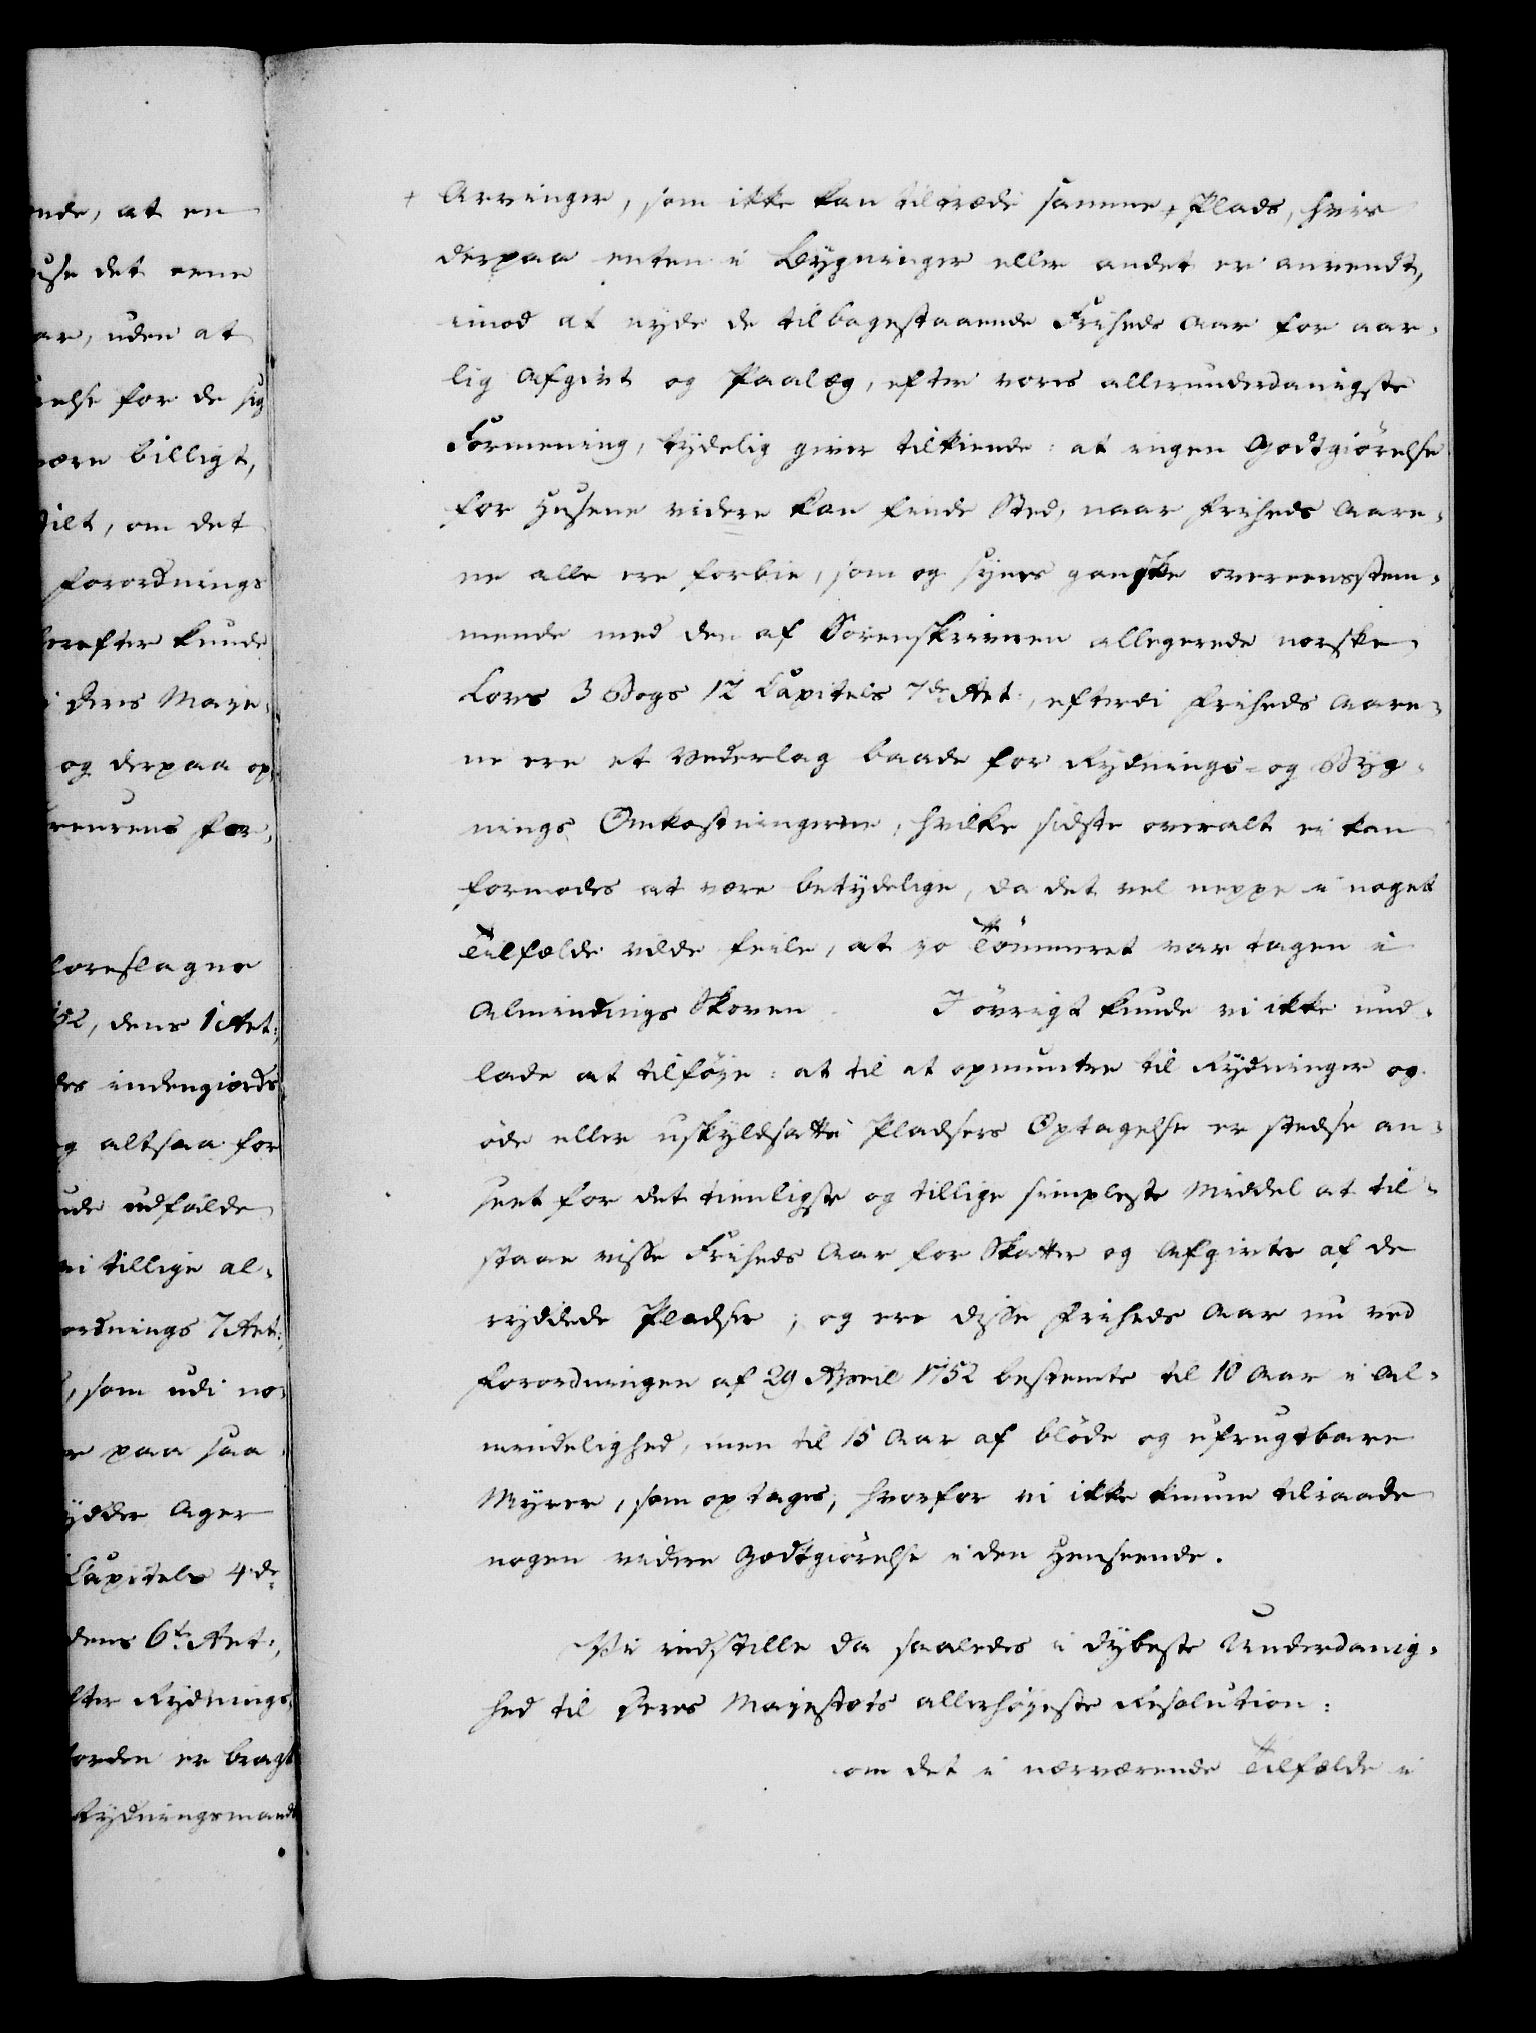 ende, at en
huse det eene
aar, uden at
relse for de sig
være billigt,
stilt, om det
forordnings
derefter kunde
i Deres Maje-
og derpaa op-
for,
foreslagne
52, dens 1 Art:,
des indengierds
og altsaa for
ude udfalde
vi tillige al-
ordnings 7 Art:,
, som udi no-
paa saa
rydder Ager
Capitels 4de
dens 6te Art:,
efter Rydnings-
Jorden er bragt
Rydningsmands
+ Arvinger, som ikke kan tiltræde samme + Plads, hvis
derpaa enten i Bygninger eller andet er anvendt,
imod at nyde de tilbagestaaende Friheds Aar for aar-
lig Afgivt og Paalæg, efter vores allerunderdanigste
Formening, tydelig giver tilkiende: at ingen Godtgiörelse
for Husene videre kan finde Sted, naar Friheds Aare-
ne alle ere forbie, som og synes ganske overeensstem-
mende med den af Sorenskriveren allegerede norske
Lovs 3 Bogs 12 Capitels 7de Art., efterdi Friheds Aare-
ne ere et Vederlag baade for Rydnings- og Byg-
nings Omkostningerne, hvilke sidste overalt ei kan
formodes at være betydelige, da det vel neppe i noget
Tilfælde vilde feile, at jo Tömmeret var tagen i
Almindings Skoven. I övrigt kunde vi ikke und-
lade at tilföye: at til at opmuntre til Rydninger og
öde eller uskyldsatte Pladsers Optagelse er stedse an-
seet for det tienligste og tillige simpleste Middel at til-
staae visse Friheds Aar for Skatter og Afgivter af de
ryddede Pladser; og ere disse Friheds Aar nu ved
Forordningen af 29 April 1752 bestemte til 10 Aar i Al-
mindelighed, men til 15 Aar af blöde og ufrugtbare
Myrer, som optages, hvorfor vi ikke kunne tilraade
nogen videre Godtgiörelse i den Henseende.
Vi indstille da saaledes i dybeste Underdanig-
hed til Deres Majestæts allerhöyeste Resolution:
om det i nærværende Tilfælde i